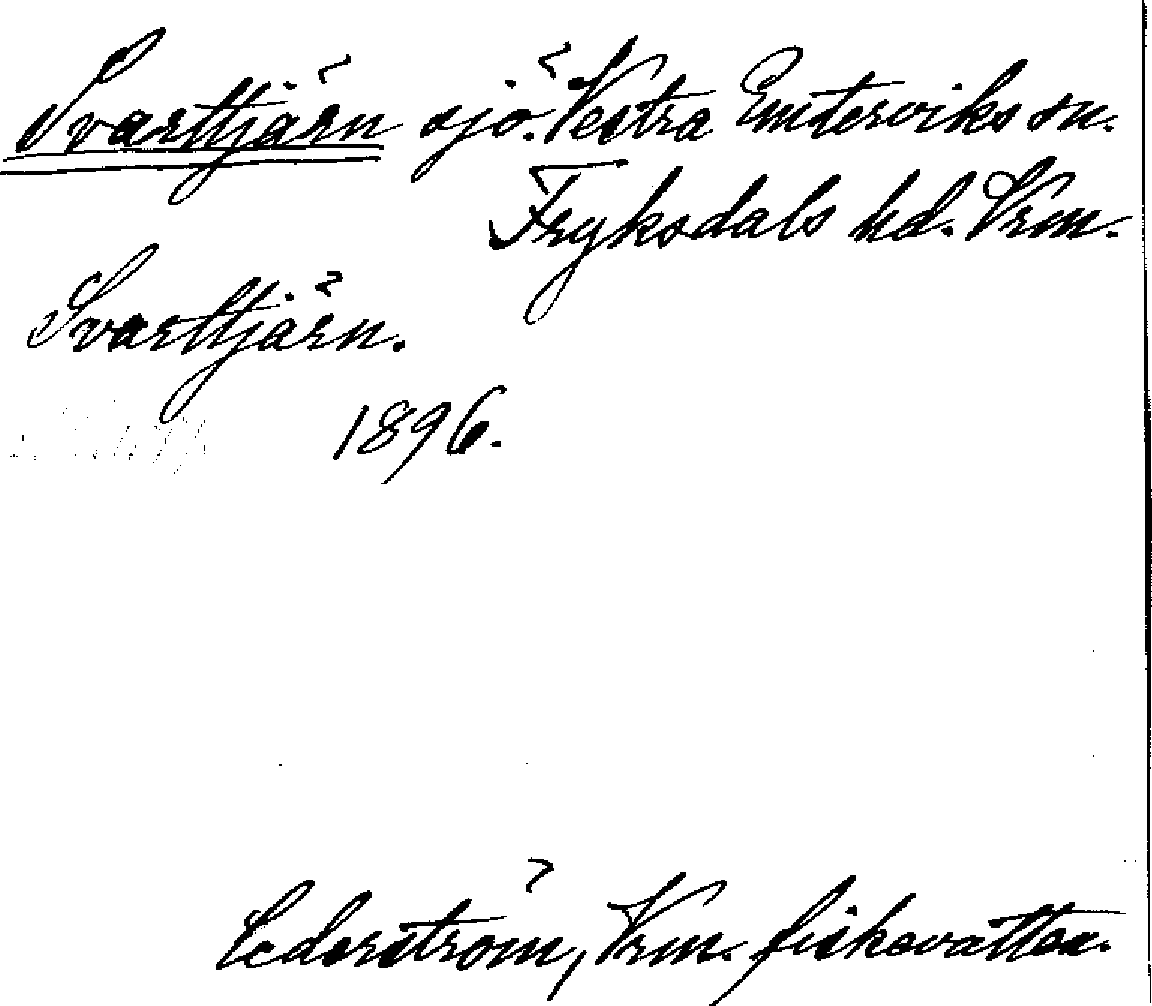 Svarttjärn sjö. Vestra Emterviks sn.
Fryksdals hd. Vrm.
Svarttjärn.
1896.
Cederström, Vrm. fiskevatten.